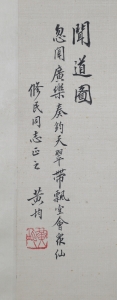 聞道圖
忽聞廣樂奏鈞天翠帶飄空會眾仙
修民同志正之 黃均